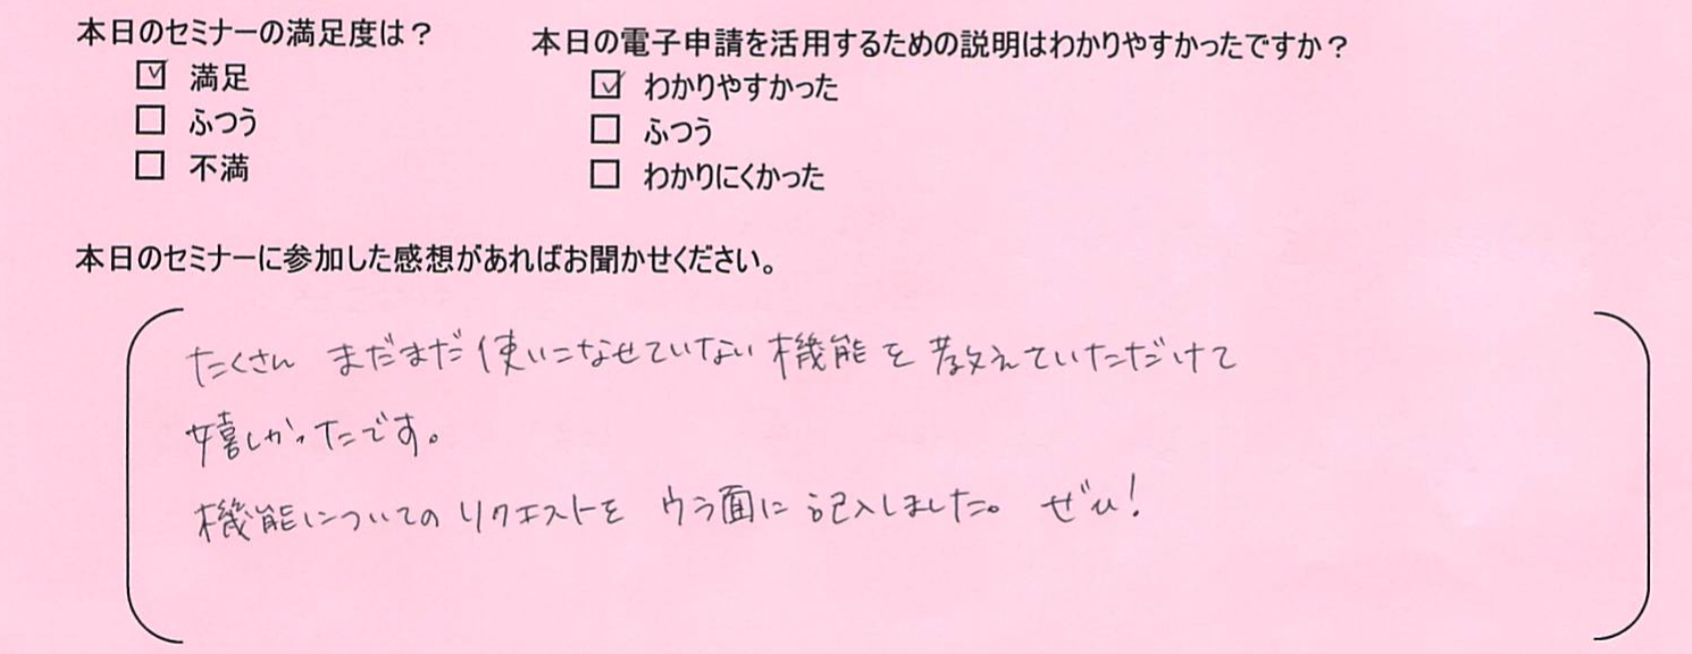 本日のセミナーの満足度は？
☑ 満足
☐ ふつう
☐ 不満
本日の電子申請を活用するための説明はわかりやすかったですか？
☑ わかりやすかった
☐ ふつう
☐ わかりにくかった
本日のセミナーに参加した感想があればお聞かせください。
たくさん まだまだ使いこなせていない機能を教えていただけて
嬉しかったです。
機能についてのリクエストを ウラ面に記入しました。 ぜひ！